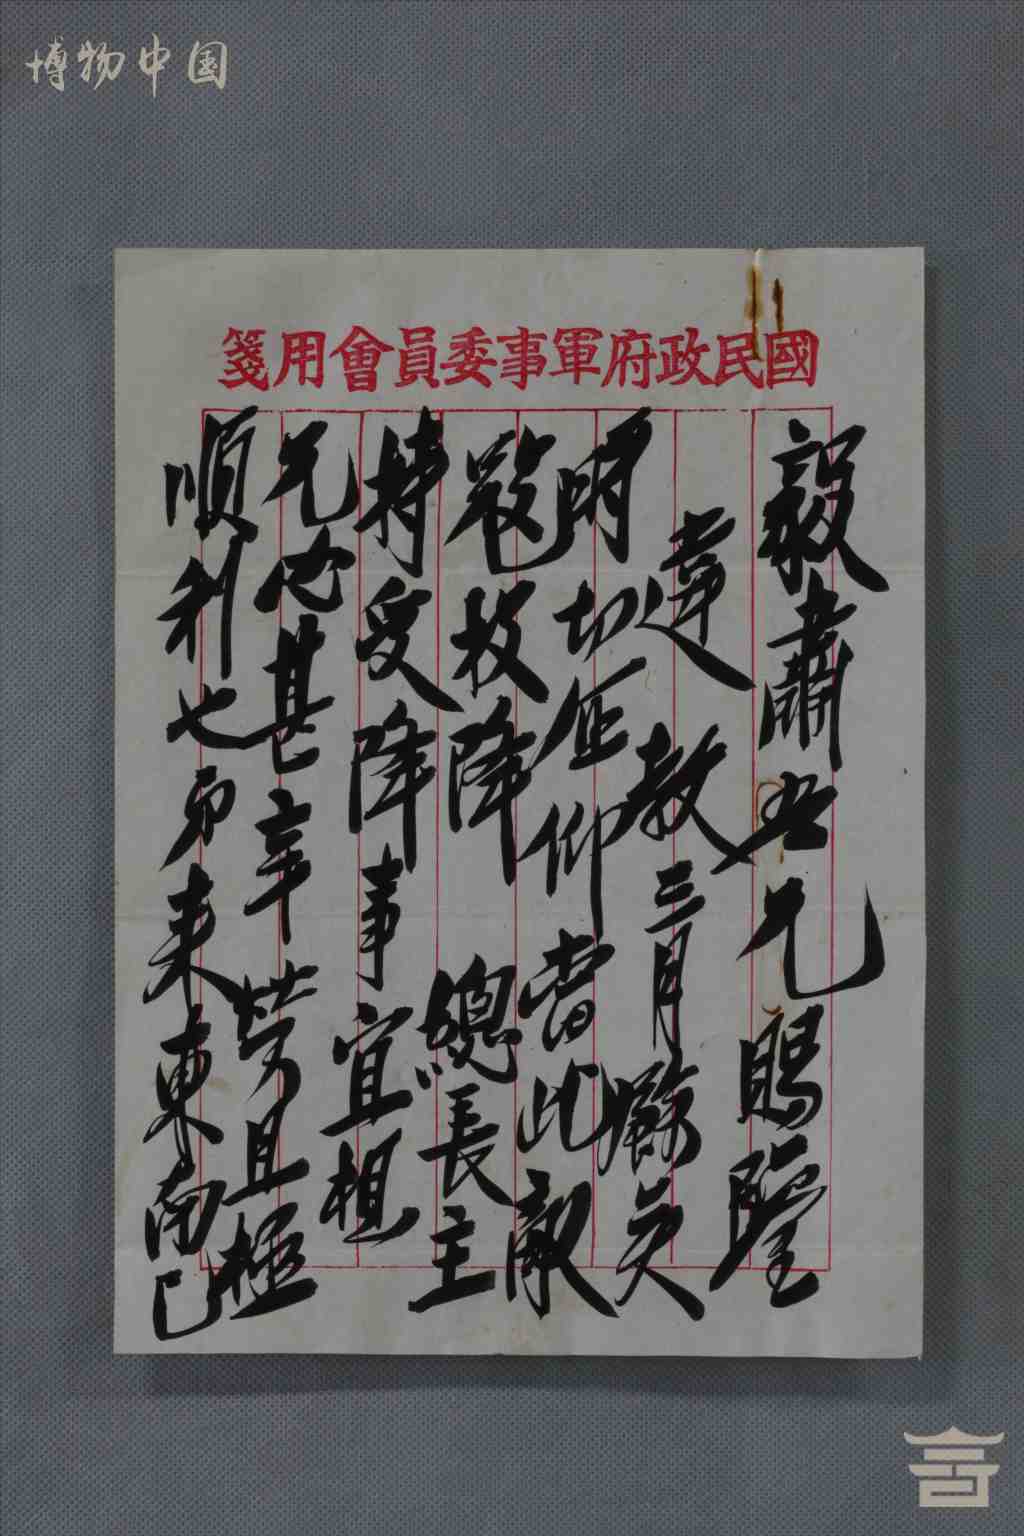 博物中国
國民政府軍事委員會用箋
毅肅吾兄賜鑒
違教三月餘矣
明切企仰當此敵
寇投降總長主
持受降事宜想
兄必甚辛勞且極
順利也弟來東南已